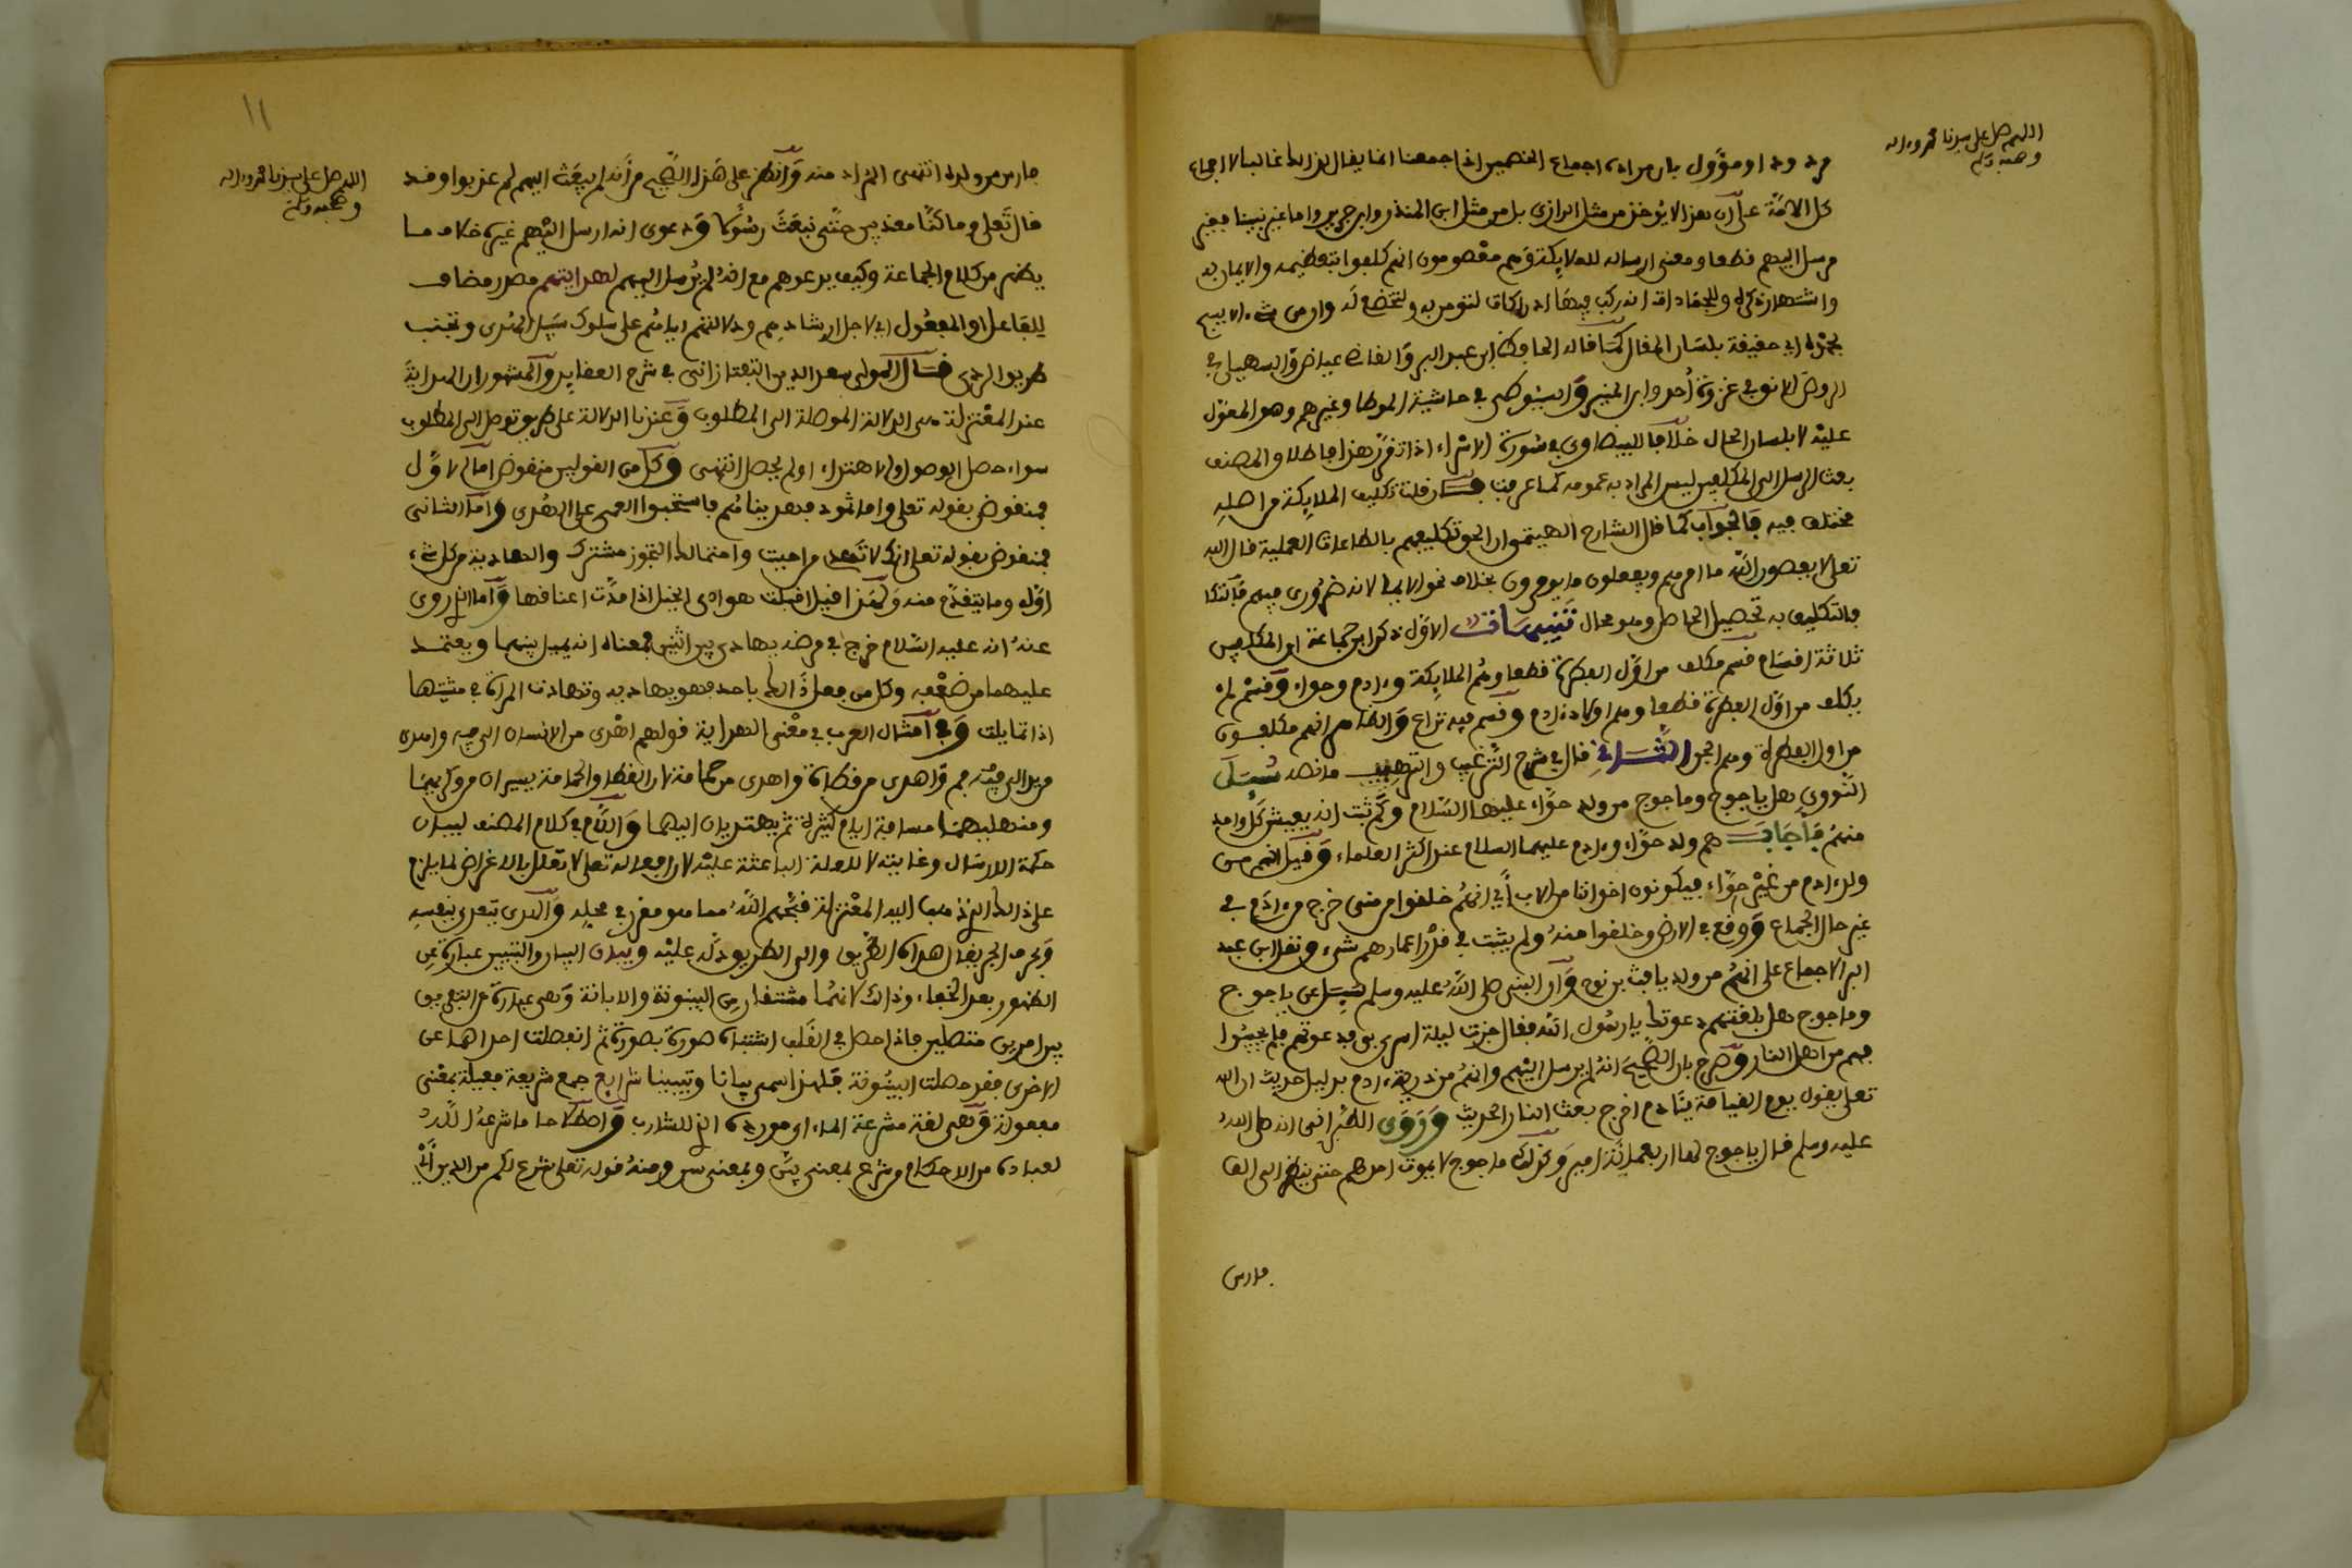 اللهم صل على سيدنا محمد وءاله
وصحبه وسلم
مردود او مؤول بان مراده اجماع الخصمين اذا جمعنا انما يقال لذالك غالبا لا اجماع
كل الامة على ان هذا لا يؤخذ من مثل الرازي بل من مثل ابن المنذر وابن جرير واما غير نبينا فغير
مرسل اليهم قطعا ومعنى ارساله للملايكة وهم معصومون انهم كلفوا بتعظيمه والايمان به
واشتهار ذكره وللجمادات انه ركب فيها ادراكات لتومن به ولتخضع له وان من شيء الا يسبح
بحمده اي حقيقة بلسان المقال كما قاله الحافظ ابن عبد البر والقاضي عياض والسهيلي في
الروض الانف في غزوة أحد وابن المنير والسيوطي في حاشية الموطا وغيرهم وهو المعول
عليه لا بلسان الحال خلافا للبيضاوي في سورة الاسراء اذا تقرر هذا فاطلاق المصنف
بعث الرسل الى المكلفين ليس المراد به عمومه كما عرفت فان قلت تكليف الملايكة من اصله
مختلف فيه فالجواب كما قال الشارح الهيتمي ان الحق تكليفهم بالطاعات العملية قال الله
تعلى لا يعصون الله ما امرهم ويفعلون ما يومرون بخلاف نحو الايمان لانه ضروري فيهم
فالتكليف به تحصيل الحاصل وهو محال تنبيهات الاول ذكر ابن جماعة ان المكلفين
ثلاثة اقسام قسم مكلف من اول الفطرة قطعا وهم الملايكة وءادم وحواء وقسم لم
يكلف من اول الفطرة قطعا وهم اولاد ءادم وقسم فيه نزاع والظاهر انهم مكلفون
من اول الفطرة وهم الجن الثاني قال في شرح الترغيب والترهيب ما نصه سئل
النووي هل ياجوج وماجوج من ولد حواء عليها السلام وكم ثبت انه يعيش كل واحد
منهم فأجاب هم ولد حواء وءادم عليهما السلام عند اكثر العلماء وقيل انهم من
ولد ءادم من غير حواء فيكونون اخواننا من الاب أي انهم خلقوا من مني خرج من ءادم في
غير حال الجماع ووقع في الارض وخلقوا منه ولم يثبت في قدر اعمارهم شيء ونقل ابن عبد
البر الاجماع على انهم من ولد يافث بن نوح وان النبي صلى الله عليه وسلم سئل عن ياجوج
وماجوج هل بلغتهم دعوتك يا رسول الله فقال جزت ليلة اسري بي فدعوتهم فلم يجيبوا
فهم من اهل النار وصرح بان الصحيح انه لم يرسل اليهم وانهم من ذرية ءادم بدليل حديث ان الله
تعلى يقول يوم القيامة يئادم اخرج بعث النار الحديث وروى الطبراني انه صلى الله
عليه وسلم قال ياجوج لها اربعمائة امير وكذلك ماجوج لا يموت احدهم حتى ينظر الى الف
فارس
١١
اللهم صل على سيدنا محمد وءاله
وصحبه وسلم
فارس من ولده انتهى المراد منه وانظر على هذا الصحيح من أنه لم يبعث اليهم لم عذبوا وقد
قال تعلى وما كنا معذبين حتى نبعث رسولا ودعوى انه ارسل اليهم غيره خلاف ما
يظهر من كلام الجماعة وكيف يدعوهم مع انه لم يرسل اليهم لهدايتهم مصدر مضاف
للفاعل او المفعول اي لاجل ارشادهم ودلالتهم اياهم على سلوك سبيل الهدى وتجنب
طريق الردى قال المولى سعد الدين التفتازاني في شرح العقايد والمشهور ان الهداية
عند المعتزلة هي الدلالة الموصلة الى المطلوب وعندنا الدلالة على طريق توصل الى المطلوب
سواء حصل الوصول والاهتداء اولم يحصل انتهى وكل من القولين منقوض اما الاول
فمنقوض بقوله تعلى واما ثمود فهديناهم فاستحبوا العمى على الهدى واما الثاني
فمنقوض بقوله تعلى انك لا تهدي من احببت واحتمال التجوز مشترك والهادية من كل شيء
اوله وما يتقدم منه ولهذا قيل اقبلت هوادي الخيل اذا مدت اعناقها واما الذي روي
عنه انه عليه السلام خرج في مرضه يهادى بين اثنين فمعناه انه يميل بينهما ويعتمد
عليهما من ضعفه وكل من فعل ذالك باحد فهو يهاديه وتهادت المراة في مشيتها
اذا تمايلت وفي امثال العرب في معنى الهداية قولهم اهدى من الانسان الى فيه واهدى
من يد الى فم واهدى من قطاة واهدى من حمامة لان القطا والحمامة يسيران من وكريهما
ومنهلهما مسافة ايام كثيرة ثم يهتديان اليهما واللام في كلام المصنف لبيان
حكمة الارسال وغايته لا للعلة الباعثة عليه لان افعاله تعلى لا تعلل بالاغراض لما يلزم
على ذالك الذي ذهب اليه المعتزلة قبحهم الله مما هو مقرر في محله والهدى يتعدى بنفسه
وبحرف الجر يقال هداه الطريق والى الطريق دله عليه وبيان البيان والتبيين عبارة عن
الظهور بعد الخفاء وذالك لانهما مشتقان من البينونة والابانة وهي عبارة عن التفريق
بين امرين متصلين فاذا حصل في القلب اشتباه صورة بصورة ثم انفصلت احداهما عن
الاخرى فقد حصلت البينونة فلهذا سمي بيانا وتبيينا شرايع جمع شريعة فعيلة بمعنى
مفعولة وهي لغة مشرعة الماء اي مورده الذي للشارب واصطلاحا ما شرعه الله
لعباده من الاحكام وشرع بمعنى بين وبمعنى سن ومنه قوله تعلى شرع لكم من الدين أي